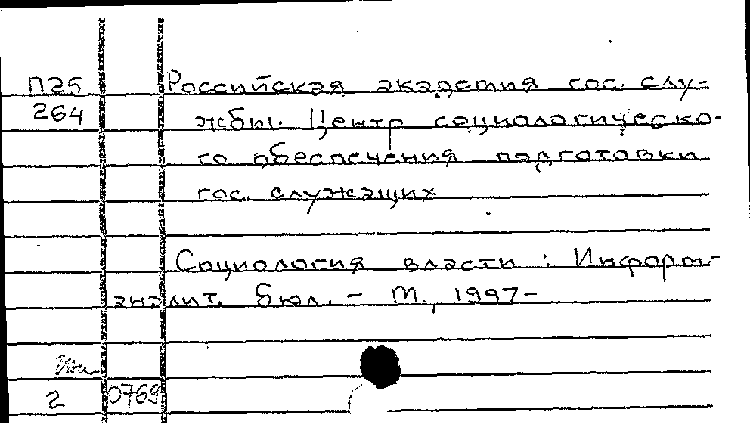 П25 Российская академия гос. слу-
264 жбы. Центр социологическо-
го обеспечения подготовки
гос. служащих
Социология власти : Информ-
аналит. бюл. - М., 1997-
2 0769